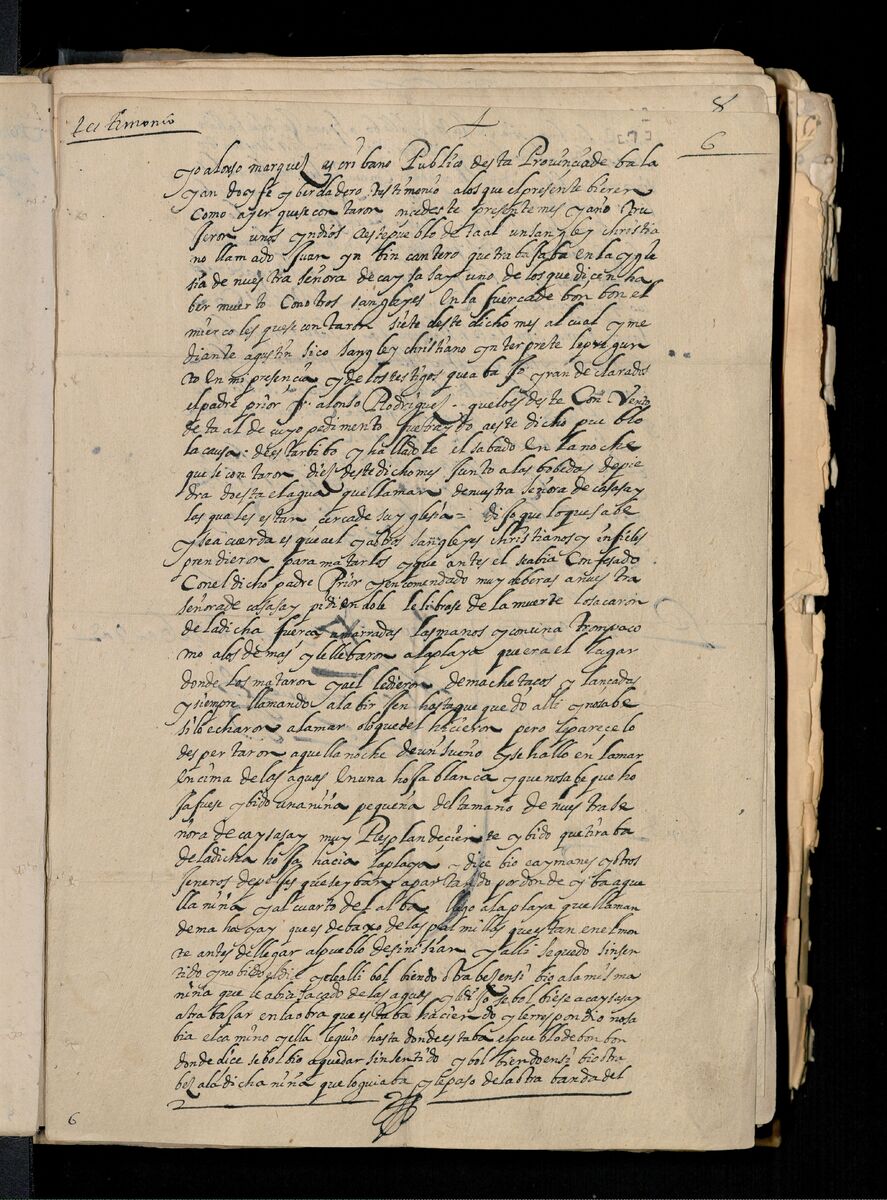 testimonio
8
6
yo alonso marques escribano Publico desta Provincia de bala
yan doy fe y berdadero testimonio a los que el presente bieren
como ayer que se contaron once deste presente mes y año tru
jeron unos yndios a este pueblo de taal un sangley christia
no llamado juan yn tin cantero que trabajaba en la ygle
sia de nuestra señora de caysasay uno de los que dicen ha
ber muerto con otros sangleyes en la fuerça de bonbon el
miercoles que se contaron siete deste dicho mes al cual y me
diante agustin sico sangley christiano ynterprete le pregun
to en mi presencia y de los testigos que abajo yran declarados
el padre prior fr. alonso Rodrigues. que lo es deste Convento
de taal de cuyo pedimento fue traydo a este dicho pueblo
la causa de estar bibo y halladole el sabado en la noche
que se contaron dies deste dicho mes junto a las bobedas de pie
dra do esta el agua que llaman de nuestra señora de casasay
las quales estan cerca de su yglesia = dijo que lo que sabe
y se acuerda es que a el y a otros sangleyes christianos y infieles
prendieron para matarlos y que antes el se abia confesado
con el dicho padre Prior y encomendado muy de beras a nuestra
señora de casasay pidiendole le librase de la muerte lo sacaron
de la dicha fuerça amarradas las manos y con una trompa co
mo a los demas y le llebaron a la playa que era el lugar
donde los mataron y a el le dieron de machetaços y lançadas
y siempre llamando a la birjen hasta que quedo alli y no sabe
si lo echaron a la mar o lo que del hicieron pero le parece lo
despertaron aquella noche de un sueño y se hallo en la mar
encima de las aguas en una hoja blanca y que no sabe que ho
ja fuese y bido una niña pequeña del tamaño de nuestra se
ñora de caysasay muy Resplandeciente y bido que tiraba
de la dicha hoja hacia la playa y dice bio caymanes y otros
jeneros de peses que se yban apartando por donde yba aque
lla niña y al cuarto del alba llego a la playa que llaman
de mahayay que es debaxo de las palmillas que estan en el mon
te antes de llegar al pueblo de sinisian y alli se quedo sin sen
tido y alli bolbiendo otra bes en si bio a la misma
niña que le abia sacado de las aguas y dijo se bolbiese a caysasay
a trabajar en la obra que estaba haciendo y le respondio no sa
bia el camino y ella le guio hasta donde estaba el pueblo de bonbon
donde dice se bolbio a quedar sin sentido y bolbiendo en si bio otra
bes a la dicha niña que lo guiaba y le paso de la otra banda del
6